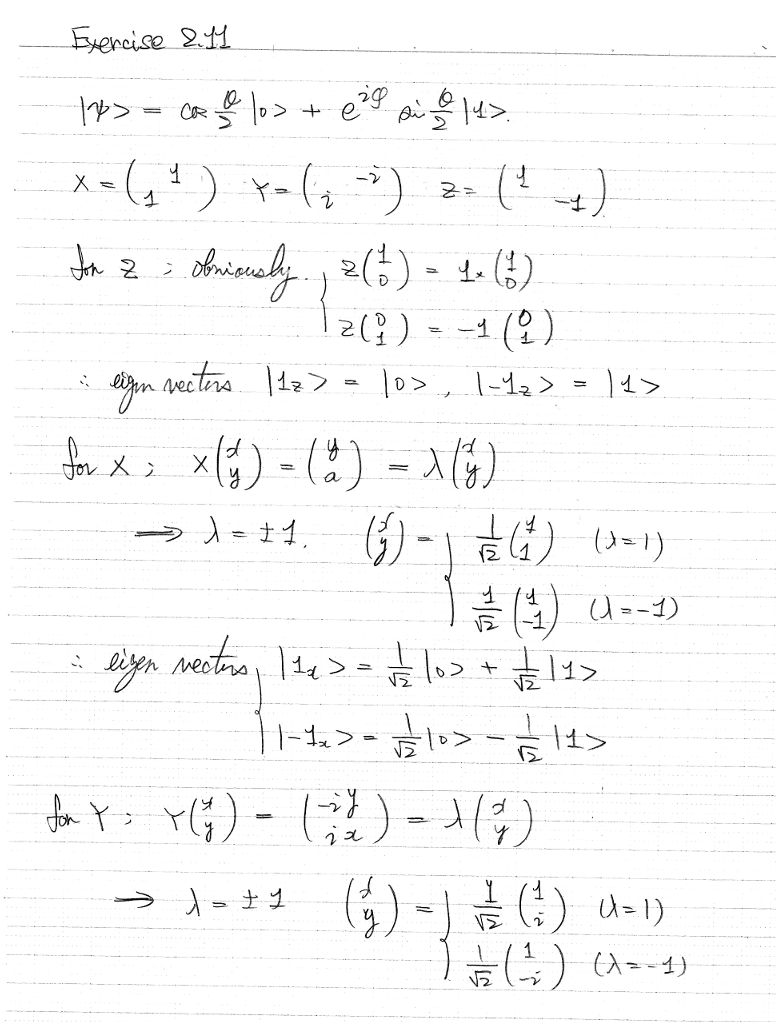 Exercise 2.11
|ψ> = cos θ/2 |0> + e^{iφ} sin θ/2 |1>.
X = ( 1 ; 1 ) Y = ( -i ; i ) Z = ( 1 ; -1 )
for Z ; obviously. { Z(1 ; 0) = 1×(1 ; 0)
Z(0 ; 1) = -1 (0 ; 1)
∴ eigen vectors |1z> = |0> , |-1z> = |1>
for X ; X(x ; y) = (y ; x) = λ(x ; y)
⟹ λ = ±1. (x ; y) = { 1/√2 (1 ; 1) (λ=1)
1/√2 (1 ; -1) (λ=-1)
∴ eigen vectors { |1x> = 1/√2 |0> + 1/√2 |1>
|-1x> = 1/√2 |0> - 1/√2 |1>
for Y ; Y(x ; y) = (-iy ; ix) = λ(x ; y)
→ λ = ±1 (x ; y) = { 1/√2 (1 ; i) (λ=1)
1/√2 (1 ; -i) (λ=-1)